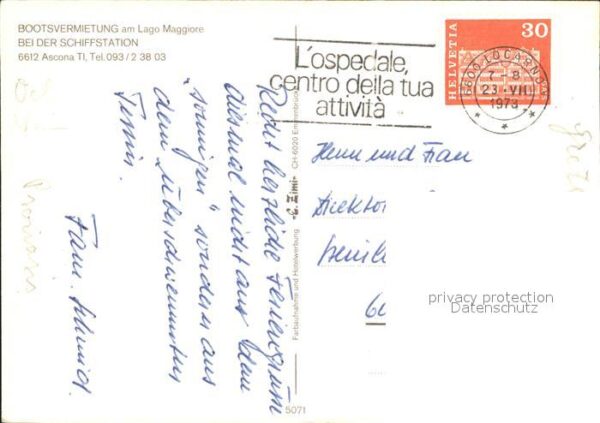 BOOTSVERMIETUNG am Lago Maggiore
BEI DER SCHIFFSTATION
6612 Ascona TI, Tel. 093/2 38 03
L'ospedale,
centro della tua
attività
HELVETIA
30
6600 LOCARNO
7-8
23. VIII
1973
Recht herzliche Feriengrüsse
diesmal nicht aus dem
"sonnigen" sondern aus
dem überschwemmten
Tessin.
Fam. Schmid.
Farbaufnahme und Hotelwerbung
CH-6020 Emmenbrücke
5071
Herrn und Frau
Direktor
privacy protection
Datenschutz